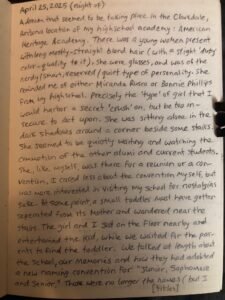 April 25, 2025 (night of)
A dream that seemed to be taking place in the
Arizona location of my highschool academy: American
Heritage Academy. There was a young women present
with long mostly-straight blond hair (with a slight "dirty
color-quality to it). She wore glasses, and was of the
nerdy/smart, reserved/quiet type of personality. She
reminded me of either Miranda or Bonnie Phillips
from my highschool. Precisely the "type" of girl that I
would harbor a secret "crush" on, but be too in-
secure to act upon. She was sitting alone in the
dark shadows around a corner beside some stairs.
She seemed to be quietly waiting and watching the
commotion of the other alumi and current students.
She, like myself, was there for a reunion or a con-
vention. I cared less about the convention myself, but
was more interested in visiting my school for nostalgias
sake. At some point a small toddler must have gotten
seperated from its Mother and wandered near the
stairs. The girl and I sat on the floor nearby and
entertained the kid while we waited for the par-
ents to find the toddler. We talked at length about
the school, our memories and how they had adopted
a new naming convention for "Junior, Sophomore
and Senior." Those were no longer the names (but I
[titles]